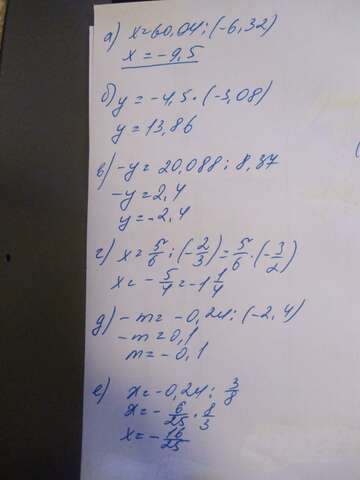 а) x=60,04:(-6,32)
x=-9,5
б) y=-4,5·(-3,08)
y=13,86
в) -y=20,088:8,37
-y=2,4
y=-2,4
г) x=5/6:(-2/3)=5/6·(-3/2)
x=-5/4=-1 1/4
д) -m=-0,24:(-2,4)
-m=0,1
m=-0,1
е) x=-0,24:3/8
x=-6/25·8/3
x=-16/25